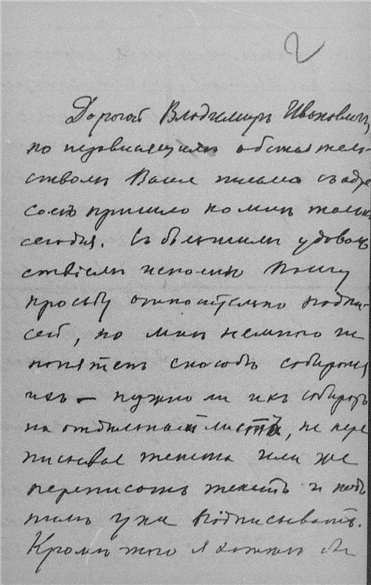 2
Дорогой Владимиръ Ивановичъ,
по независящимъ обстоятель-
ствамъ Ваше письмо съ адре-
сомъ пришло ко мнѣ только
сегодня. Съ большимъ удоволь-
ствіемъ исполню Вашу
просьбу относительно подпи-
сей, но мнѣ немного не
понятенъ способъ собиранія
ихъ – нужно ли ихъ собирать
на отдѣльный листъ, не пере
писывая текста или же
переписать текстъ и подъ
нимъ уже подписывать.
Кромѣ того я